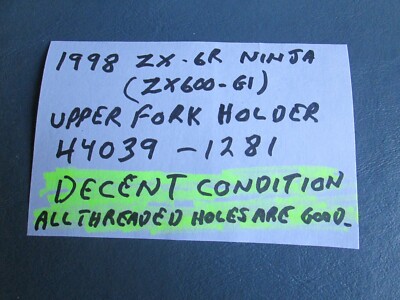 1998 ZX-6R NINJA
(ZX600-G1)
UPPER FORK HOLDER
44039-1281
DECENT CONDITION
ALL THREADED HOLES ARE GOOD.